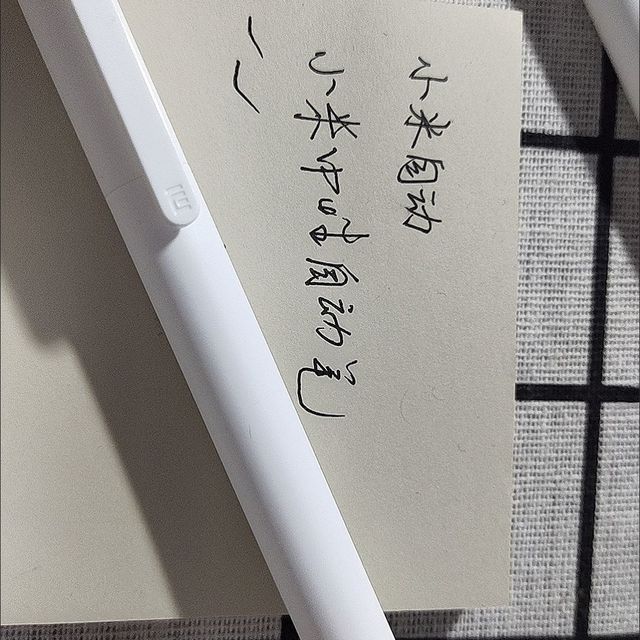 小米自动
小米中性自动笔